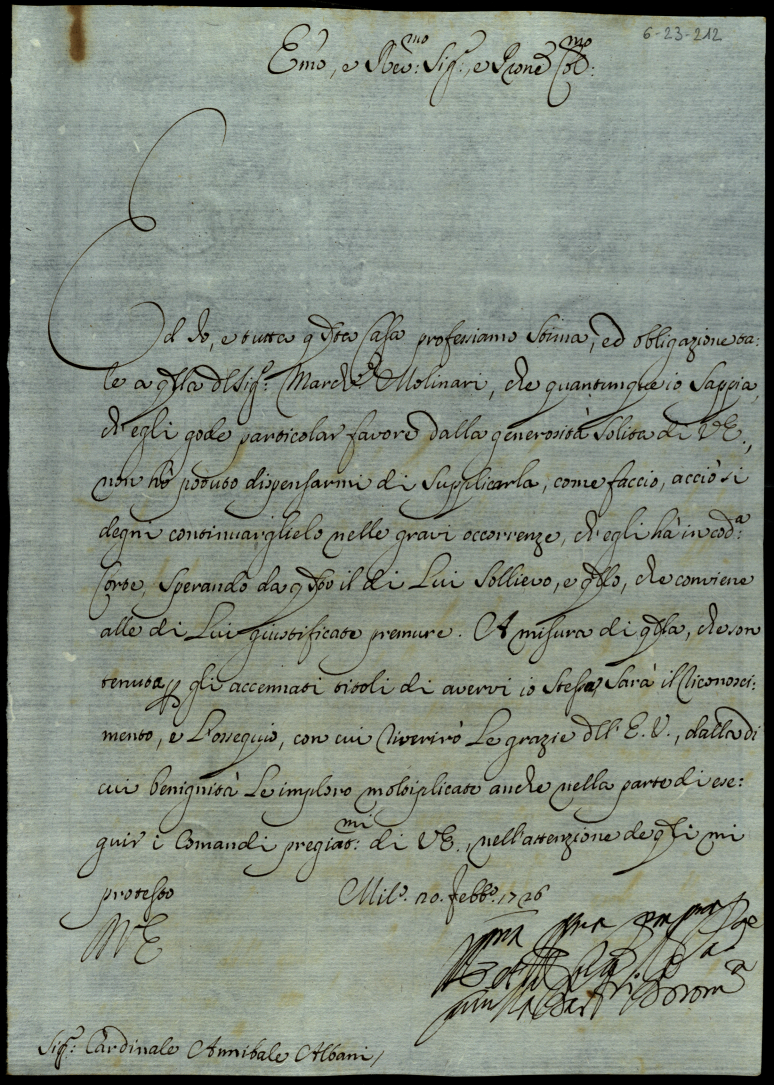 6-23-212
Emo, e Rev:mo Sig:r, e Prone Col:mo
Ed Io, e tutta qsta Casa professiamo Stima, ed obligazione ta:
le a qlla dl Sig:r March:e Molinari, che quantunque io Sappia,
ch'egli gode particolar favore dalla generosità Solita di VE.,
non hò potuto dispensarmi di Supplicarla, come faccio, acciò si
degni continuarglielo nelle gravi occorrenze, ch'egli hà in cod:a
Corte, Sperando da qsto il di Lui Sollievo, e qllo, che conviene
alle di Lui giustificate premure. A misura di qlla, che son
tenuta p gli accennati titoli di avervi io Stessa, Sarà il Riconosci:
mento, e L'ossequio, con cui Riverirò Le grazie dll'E.V., dalla di
cui benignità Le imploro moltiplicate anche nella parte di ese:
guir i Comandi pregiat:mi di VE., nell'attenzione de qli mi
protesto Mil:o 20. Febb:o 1726
VE
Sig:r Cardinale Annibale Albani